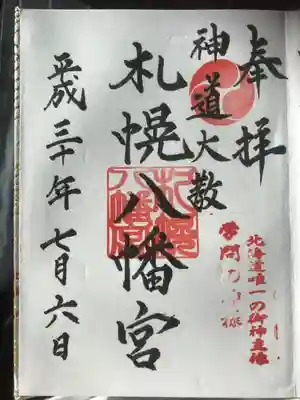 奉拝
北海道唯一の御神主様
学問の神様
神道大教
札幌八幡宮
札幌八幡宮
平成三十年七月六日